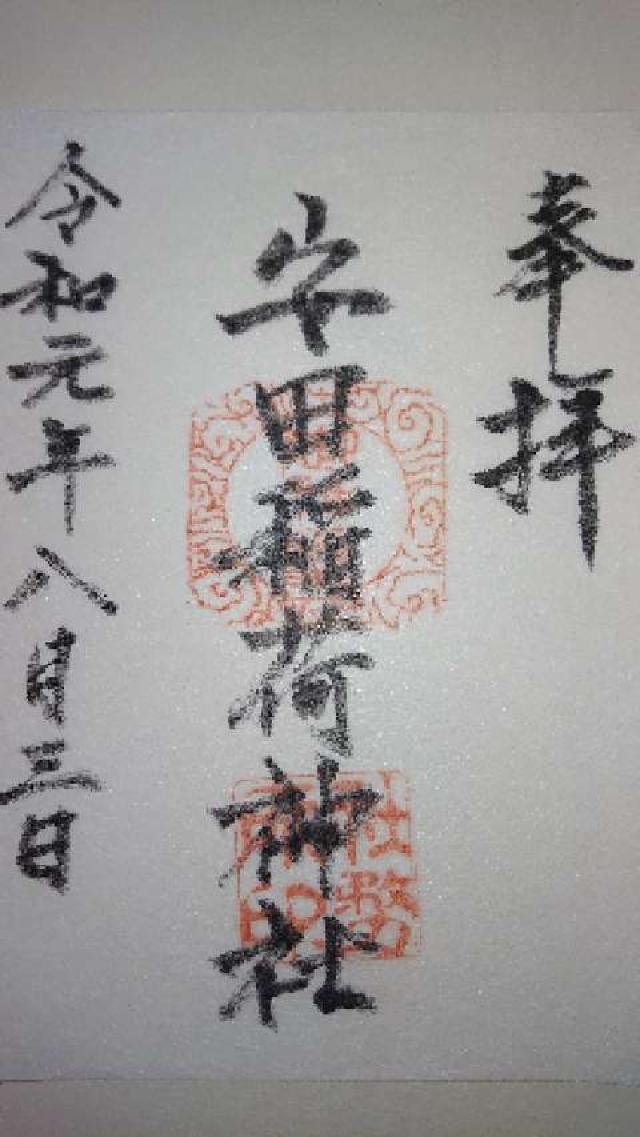 奉拝
安田稲荷神社
令和元年八月三日
社務